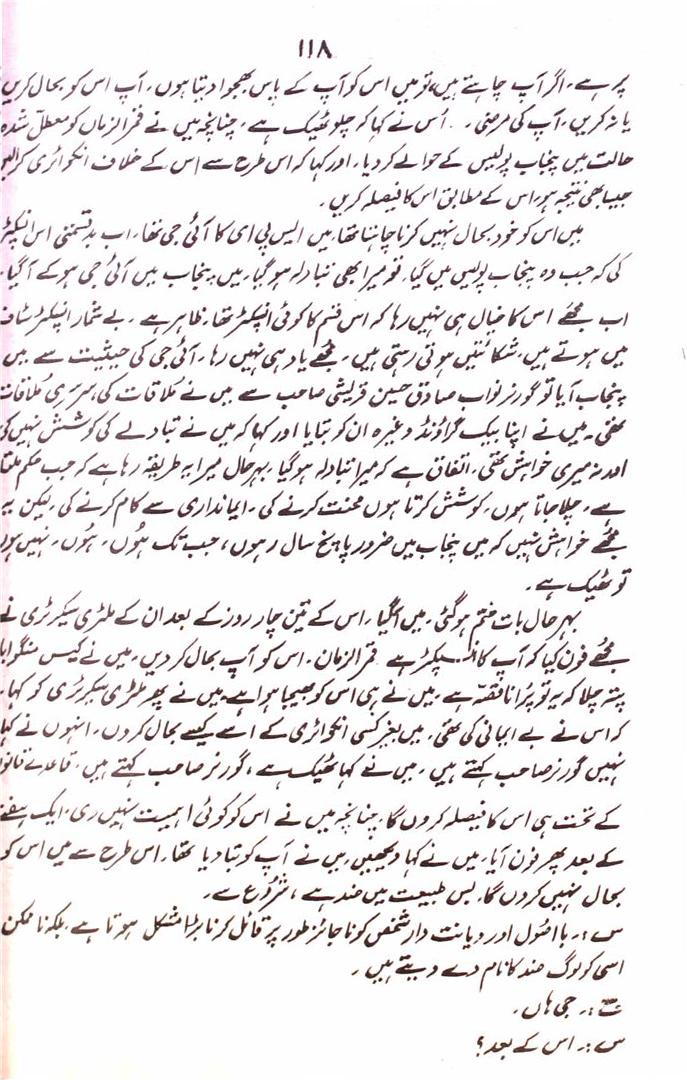 ۱۱۸
پر ہے۔ اگر آپ چاہتے ہیں، تو میں اس کو آپ کے پاس بھجوا دیتا ہوں۔ آپ اس کو بحال کریں
یا نہ کریں، آپ کی مرضی۔ اُس نے کہا کہ چلو ٹھیک ہے۔ چنانچہ میں نے قمرالزمان کو معطل شدہ
حالت میں پنجاب پولیس کے حوالے کر دیا۔ اور کہا کہ اس طرح سے اس کے خلاف انکوائری
جیسا بھی نتیجہ ہو، اس کے مطابق اس کا فیصلہ کریں۔
میں اس کو خود بحال نہیں کرنا چاہتا تھا۔ میں ایس پی ای کا آئی جی تھا۔ اب بدقسمتی اس انسپکٹر
کی کہ جب وہ پنجاب پولیس میں گیا، تو میرا بھی تبادلہ ہو گیا۔ میں پنجاب میں آئی جی ہو کے آ گیا۔
اب مجھے اس کا خیال ہی نہیں رہا کہ اس قسم کا کوئی انسپکٹر تھا۔ ظاہر ہے۔ بے شمار انسپکٹر سٹاف
میں ہوتے ہیں، شکائتیں ہوتی رہتی ہیں۔ مجھے یاد ہی نہیں رہا۔ آئی جی کی حیثیت سے میں
پنجاب آیا تو گورنر نواب صادق حسین قریشی صاحب سے میں نے ملاقات کی، سرسری ملاقات
تھی۔ میں نے اپنا بیک گراؤنڈ وغیرہ ان کو بتایا اور کہا کہ میں نے تبادلے کی کوشش نہیں کی
اور نہ میری خواہش تھی۔ اتفاق ہے کہ میرا تبادلہ ہو گیا۔ بہرحال میرا یہ طریقہ رہا ہے کہ جب حکم ملتا
ہے، چلا جاتا ہوں، کوشش کرتا ہوں محنت کرنے کی۔ ایمانداری سے کام کرنے کی۔ لیکن یہ
مجھے خواہش نہیں کہ میں پنجاب میں ضرور پانچ سال رہوں، جب تک ہُوں، ہُوں، نہیں ہوں
تو ٹھیک ہے۔
بہرحال بات ختم ہو گئی۔ میں آ گیا۔ اس کے تین چار روز کے بعد ان کے ملٹری سیکرٹری نے
مجھے فون کیا کہ آپ کا انسپکٹر ہے قمرالزمان۔ اس کو آپ بحال کر دیں۔ میں نے کیس منگوایا
پتہ چلا کہ یہ تو پرانا قصّہ ہے۔ میں نے ہی اس کو بھیجا ہوا ہے۔ میں نے پھر ملٹری سیکرٹری کو کہا۔
کہ اس نے بے ایمانی کی تھی۔ میں بغیر کسی انکوائری کے اسے کیسے بحال کر دوں۔ انہوں نے کہا
نہیں گورنر صاحب کہتے ہیں۔ میں نے کہا ٹھیک ہے، گورنر صاحب کہتے ہیں۔ قاعدے قانون
کے تحت ہی اس کا فیصلہ کروں گا۔ چنانچہ میں نے اس کو کوئی اہمیت نہیں دی۔ ایک ہفتے
کے بعد پھر فون آیا۔ میں نے کہا دیکھیں، میں نے آپ کو بتا دیا تھا۔ اس طرح سے میں اس کو
بحال نہیں کروں گا۔ بس طبیعت میں ضد ہے، شروع سے۔
س:۔ بااصُول اور دیانت دار شخص کو ناجائز طور پر قائل کرنا بڑا مشکل ہوتا ہے۔ بلکہ ناممکن
اسی کو لوگ ضد کا نام دے دیتے ہیں۔
ج:۔ جی ہاں۔
س:۔ اس کے بعد؟